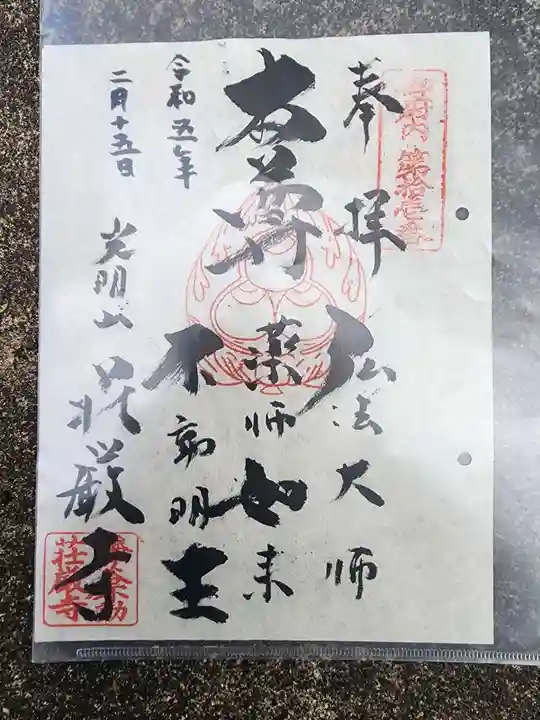 御府内 第拾壱番
奉拝
弘法大師
本尊
薬師如来
不動明王
令和五年
二月十五日
光明山
荘厳寺
荘厳寺